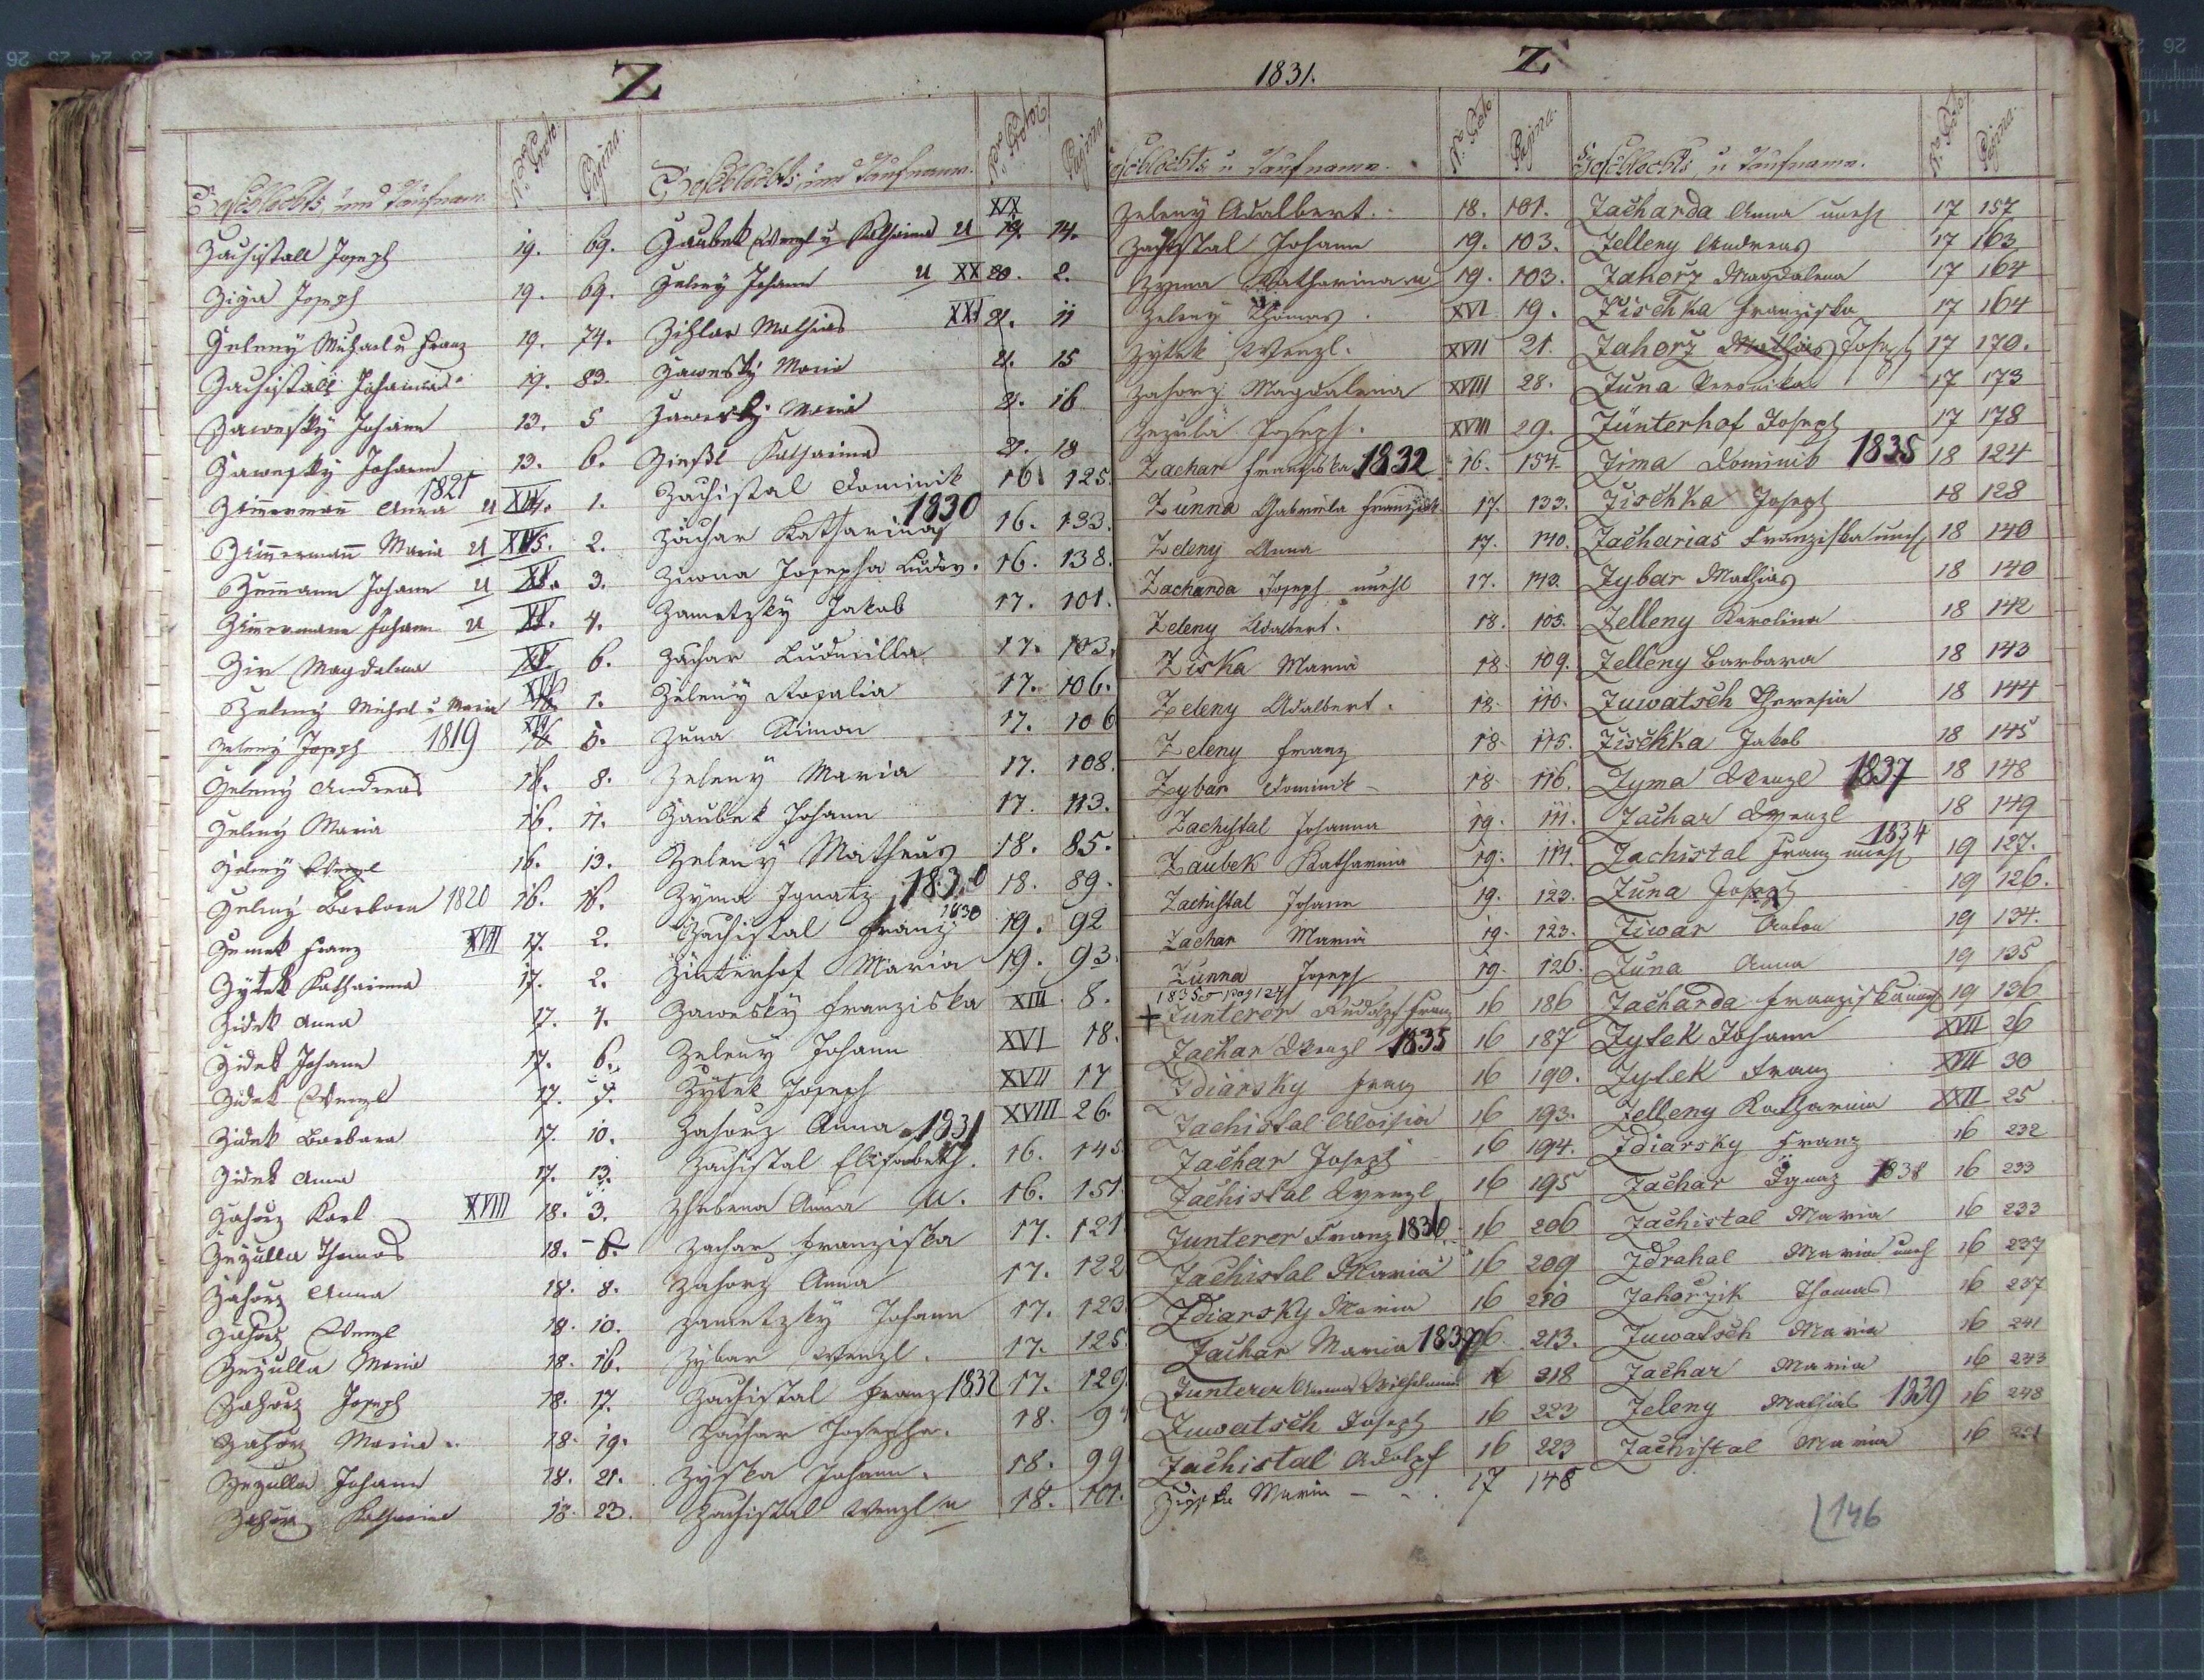 Z
Geschlechts und Taufnam.
No. Proto.
Pagina.
Zachistall Joseph 19. 69.
Ziga Joseph 19. 69.
Zeleny Michael u Franz 19. 74.
Zachistall Johannes 19. 83.
Zawesky Johann 13. 5
Zawesky Johann 13. 6.
1821
Zimmermann Anna u XIV. 1.
Zimmermann Maria u XV. 2.
Johann u XV. 3.
Zimmermann Johann u XV. 4.
Magdalena XV. 6.
Zeleny Michael u Maria XVI 1.
Zeleny Joseph 1819 XVI 5.
Zeleny Andreas 16. 8.
Zeleny Maria 16. 11.
Zeleny Wenzl 16. 13.
Zeleny Barbara 1820 16. 16.
Zemek Franz XVII 17. 2.
Zytek Katharina 17. 2.
Zidek Anna 17. 4.
Zidek Johann 17. 6.
Zidek Wenzl 17.
Zidek Barbara 17. 10.
Zidek Anna 17. 13.
Zahorz Karl XVIII 18. 3.
Zezulla Thomas 18. 6.
Zahorz Anna 18. 8.
Zahorz Wenzl 18. 10.
Zezulla Maria 18. 16.
Zahorz Joseph 18. 17.
Zahorz Maria 18. 19.
Zezulla Johann 18. 21.
Zahorz Katharina 18. 23.
Geschlechts und Taufname.
No. Proto
Pagina
Zaubek Wenzl u Katharina u XIX 19. 14.
Zeleny Johann u XX 20. 2.
Mathias XXI 21. 11
Zawesky Maria 21. 15
Zawesky Maria 21. 16
Katharina 21. 18
Zachistal Dominik 16. 125.
1830
Zachar Katharina 16. 133.
Zuona Josepha Ludov. 16. 138.
Zametzky Jakob 17. 101.
Zachar Ludmilla 17. 103.
Zeleny Rosalia 17. 106.
Zuna Simon 17. 106
Zeleny Maria 17. 108.
Zaubek Johann 17. 113.
Zeleny Matheus 18. 85.
Zyma Ignatz 1830 18. 89.
Zachistal Franz 1830 19. 92
Zinterhof Maria 19. 93.
Zawesky Franziska XIII 8.
Zeleny Johann XVI 18.
Zytek Joseph XVII 17
Zahorz Anna 1831 XVIII 26.
Zachistal Elisabeth. 16. 145
Anna u. 16. 151.
Zachar Franziska 17. 121
Zahorz Anna 17. 122
Zametzky Johann 17. 123
Zybar Wenzl. 17. 125
Zachistal Franz 1832 17. 129.
Zachar Josepha. 18. 9
Zyska Johann. 18. 99
Zachistal Wenzl u 18. 101.
1831.
Z
Geschlechts u Taufname.
No. Proto.
Pagina.
Zeleny Adalbert. 18. 101.
Zachistal Johann 19. 103.
Zyma Katharina u 19. 103.
Zeleny Thomas. XVI 19.
Zytek Wenzl. XVII 21.
Zahorz Magdalena XVIII 28.
Zezula Joseph. XVIII 29.
Zachar Franziska 1832 16. 154.
Zunna Gabriela Franziska 17. 133.
Zeleny Anna 17. 140.
Zacharda Joseph unehl 17. 143.
Zeleny Adalbert. 18. 105.
Ziska Maria 18. 109.
Zeleny Adalbert. 18. 110.
Zeleny Franz 18. 115.
Zybar Dominik 18. 116.
Zachistal Johanna 19. 111.
Zaubek Katharina 19. 114.
Zachistal Johann 19. 123.
Zachar Maria 19. 123.
Zunna Joseph 19. 126.
1835 pag 124
+ Zunterer Rudolf Franz 16 186
Zachar Wenzl 1835 16 187
Zdiarsky Franz 16 190.
Zachistal Aloisia 16 193.
Zachar Joseph 16 194.
Zachistal Wenzl 16 195
Zunterer Franz 1836 16 206
Zachistal Maria 16 209
Zdiarsky Maria 16 210
Zachar Maria 1837 16. 213.
Zunterer Anna Wilhelmine 16 218
Zuwatsch Joseph 16 223
Zachistal Adolpf 16 223
Maria 17 148
Geschlechts u Taufname.
No. Proto
Pagina.
Zacharda Anna unehl 17 157
Zelleny Andreas 17 163
Zahorz Magdalena 17 164
Zischka Franziska 17 164
Zahorz Mathias Joseph 17 170.
Zuna Veronika 17 173
Zünterhof Joseph 17 178
Zima Dominik 1835 18 124
Zischka Joseph 18 128
Zacharias Franziska unehl 18 140
Zybar Mathias 18 140
Zelleny Karolina 18 142
Zelleny Barbara 18 143
Zuwatsch Theresia 18 144
Zischka Jakob 18 145
Zyma Wenzl 1837 18 148
Zachar Wenzl 18 149
1834
Zachistal Franz unehl 19 127.
Zuna Joseph 19 126.
Ziwar Anton 19 134.
Zuna Anna 19 135
Zacharda Franziska unehl 19 136
Zytek Johann XVII 26
Zytek Franz XVII 30
Zelleny Katharina XXII 25
Zdiarsky Franz 16 232
Zachar Ignaz 1838 16 233
Zachistal Maria 16 233
Zdrahal Maria unehl 16 237
Zahorzik Thomas 16 237
Zuwatsch Maria 16 241
Zachar Maria 16 243
Zeleny Mathias 1839 16 248
Zachistal Maria 16
146